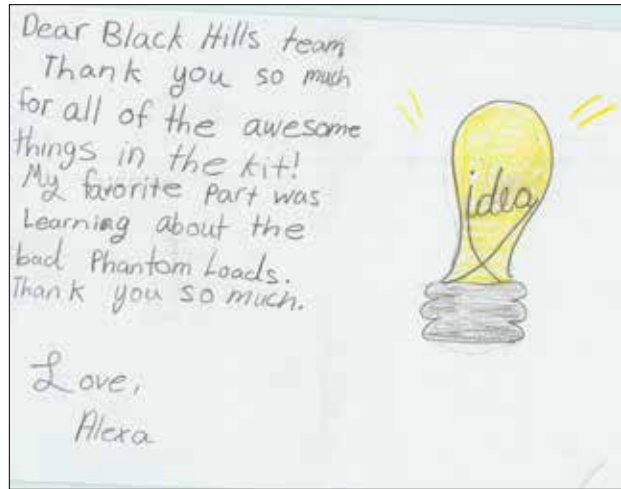 Dear Black Hills team
Thank you so much
for all of the awesome
things in the kit!
My favorite part was
Learning about the
bad Phantom Loads.
Thank you so much.
Love,
Alexa
idea